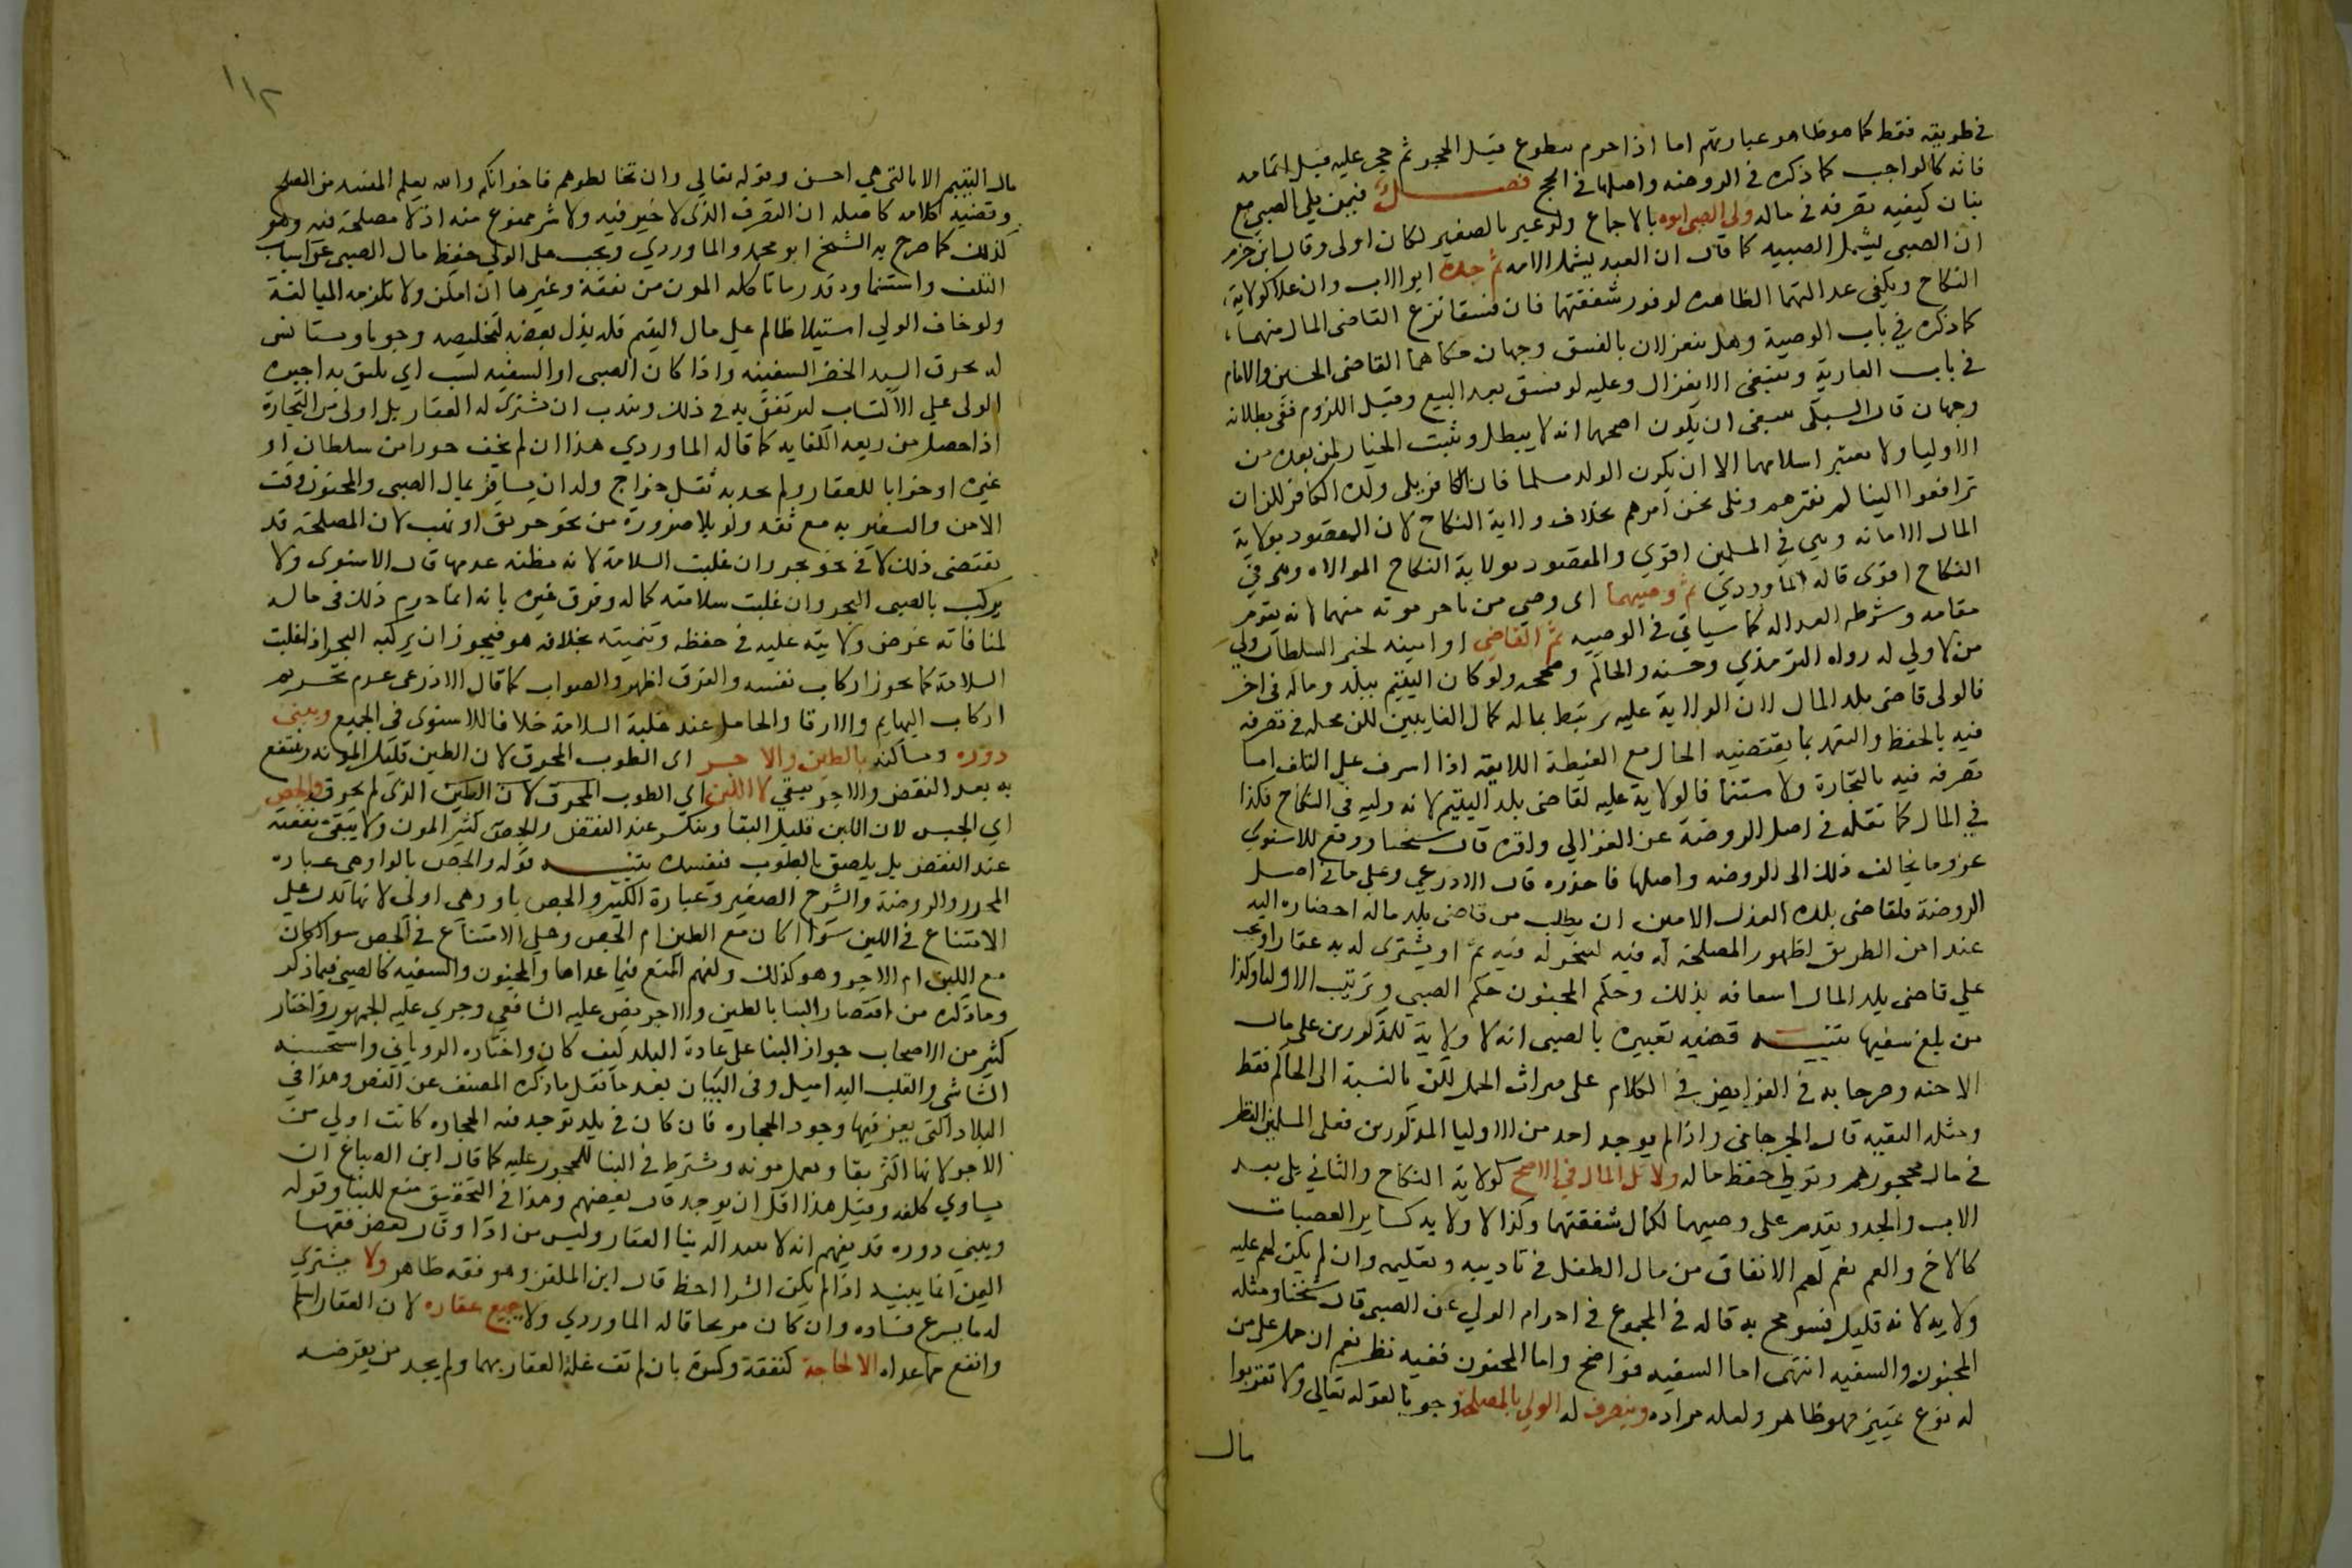 في طريقه فقط كما هو ظاهر عبارتهم اما اذا احرم بتطوع قبل الحجر ثم حجر عليه قبل اتمامه
فانه كالواجب كما ذكره في الروضه واصلها في الحج فصل فيمن يلي الصبي مع
بيان كيفيه تصرفه في ماله ولي الصبي ابوه بالاجماع ولو عبر بالصغير لكان اولى وقال ابن حزم
ان الصبي يشمل الصبيه كما قال ان العبد يشمل الامه ثم جده ابو الاب وان علا كولاية
النكاح ويكفي عدالتهما الظاهره لوفور شفقتهما فان فسقا نزع القاضي المال منهما
كما ذكره في باب الوصية وهل ينعزلان بالفسق وجهان حكاهما القاضي الحسين والامام
في باب العارية وينبغي الانعزال وعليه لو فسق بعد البيع وقبل اللزوم ففي بطلانه
وجهان قال السبكي ينبغي ان يكون اصحهما انه لا يبطل ويثبت الخيار لمن بعده من
الاوليا ولا يعتبر اسلامهما الا ان يكون الولد مسلما فان الكافر يلي ولده الكافر لكن ان
ترافعوا الينا لم نقرهم ونلي نحن امرهم بخلاف ولاية النكاح لان المقصود بولاية
المال الامانه وهي في المسلمين اقوي والمقصود بولاية النكاح الموالاه وهي في
النكاح اقوى قاله الماوردي ثم وصيهما اي وصي من تاخر موته منهما لانه يقوم
مقامه وشرطه العداله كما سياتي في الوصيه ثم القاضي او امينه لخبر السلطان ولي
من لا ولي له رواه الترمذي وحسنه والحاكم وصححه ولو كان اليتيم ببلد وماله في اخر
فالولي قاضي بلد المال لان الولاية عليه ترتبط بماله كمال الغايبين لكن محله في تصرفه
فيه بالحفظ والتعهد بما يقتضيه الحال مع الغبطة اللايقه اذا اشرف على التلف اما
تصرفه فيه بالتجارة والاستنما فالولاية عليه لقاضي بلد اليتيم لانه وليه في النكاح فكذا
في المال كما نقله في اصل الروضة عن الغزالي واقره قال شيخنا ووقع للاسنوي
عزو ما يخالف ذلك الى الروضه واصلها فاحذره قال الاذرعي وعلى ما في اصل
الروضة فلقاضي بلده العدل الامين ان يطلب من قاضي بلد ماله احضاره اليه
عند امن الطريق لظهور المصلحة له فيه ليتجر له فيه ثم او يشتري له به عقارا ويجب
علي قاضي بلد المال اسعافه بذلك وحكم المجنون حكم الصبي وترتيب الاوليا وكذا
من بلغ سفيها تنبيه قضيه تعبيره بالصبي انه لا ولاية للمذكورين على مال
الاجنه وصرحا به في الفرايض في الكلام على ميراث الحمل لكن بالنسبة الى الحاكم فقط
ومثله البقيه قال الجرجاني واذا لم يوجد احد من الاوليا المذكورين فعلى المسلمين النظر
في مال محجورهم وتولي حفظ ماله ولا تلي الام في الاصح كولاية النكاح والثاني بلى بعد
الاب والجد وتقدم على وصيهما لكمال شفقتها وكذا لا ولاية لساير العصبات
كالاخ والعم نعم لهم الانفاق من مال الطفل في تاديبه وتعليمه وان لم يكن لهم عليه
ولايه لانه قليل فسومح به قاله في المجموع في احرام الولي عن الصبي قال شيخنا ومثله
المجنون والسفيه انتهى اما السفيه فواضح واما المجنون ففيه نظر نعم ان حمل على من
له نوع تمييز فهو ظاهر ولعله مراده ويتصرف له الولي بالمصلحة وجوبا لقوله تعالى ولا تقربوا
مال
١١٢
مال اليتيم الا بالتي هي احسن وقوله تعالى وان تخالطوهم فاخوانكم والله يعلم المفسد من المصلح
وقضيه كلامه كاصله ان التصرف الذي لا خير فيه ولا شر ممنوع منه اذ لا مصلحة فيه وهو
كذلك كما صرح به الشيخ ابو محمد والماوردي ويجب على الولي حفظ مال الصبي عن اسباب
التلف واستنماوه قدر ما تاكله المون من نفقة وغيرها ان امكن ولا تلزمه المبالغة
ولو خاف الولي استيلا ظالم علي مال اليتيم فله بذل بعضه لتخليصه وجوبا ويستانس
له بخرق السيد الخضر السفينه واذا كان الصبي او السفيه كسب اي يليق به اجبره
الولي علي الاكتساب ليرتفق به في ذلك ويندب ان يشتري له العقار بل اولى من التجارة
اذا حصل من ريعه الكفايه كما قاله الماوردي هذا ان لم يخف جورا من سلطان او
غيره او خرابا للعقار ولم يجد به ثقل خراج وله ان يسافر بمال الصبي والمجنون وقت
الامن والسفر به مع ثقه ولو بلا ضرورة من نحو حريق او نهب لان المصلحة قد
تقتضي ذلك لا في نحو بحر وان غلبت السلامة لانه مظنة عدمها قال الاسنوى ولا
يركب بالصبي البحر وان غلبت سلامته كماله وفرق غيره بانه انما حرم ذلك في ماله
لمنافاته غرض ولايته عليه في حفظه وتنميته بخلافه هو فيجوز ان يركبه البحر اذا غلبت
السلامة كما يجوز اركاب نفسه والفرق اظهر والصواب كما قال الاذرعي عدم تحريم
اركاب البهايم والارقا والحامل عند غلبة السلامة خلافا للاسنوى في الجميع ويبني
دوره ومساكنه بالطين والاجر اى الطوب المحرق لان الطين قليل المونه وينتفع
به بعد النقض والاجر يبقي لا اللبن اي الطوب المحرق لان الطين الذي لم يحرق والجص
اي الجبس لان اللبن قليل البقا وينكسر عند النقض والجص كثير المون ولا يبقي منفعته
عند النقض بل يلصق بالطوب فيفسده تنبيه قوله والجص بالواو هي عباره
المحرر والروضة والشرح الصغير وعبارة الكبير والجص باو وهى اولى لانها تدل علي
الامتناع في اللبن سوا اكان مع الطين ام الجص وعلي الامتناع في الجص سوا اكان
مع اللبن ام الاجر وهو كذلك ولفهم المنع فيما عداها والمجنون والسفيه كالصبي فيما ذكر
وما ذكره من اقتصار البنا بالطين والاجر نص عليه الشافعي وجري عليه الجمهور واختار
كثير من الاصحاب جواز البنا على عادة البلد كيف كان واختاره الروياني واستحسنه
الشاشي والقلب اليه اميل وفى البيان بعد ما نقل ما ذكره المصنف عن النص وهذا في
البلاد التي يعز فيها وجود الحجاره فان كان في بلد توجد فيه الحجاره كانت اولى من
الاجر لانها اكثر بقا واقل مونه ويشترط في البنا للمحجور عليه كما قال ابن الصباغ ان
يساوي كلفه وقيل هذا اقل ان يوجد قال بعضهم وهذا في التحقيق منع للبنا وقوله
ويبني دوره قد يفهم انه لا يبتدا له بنا العقار وليس مرادا وقال بعض فقها
اليمن انما يبنيه اذا لم يكن الشرا احظ قال ابن الملقن وهو فقه ظاهر ولا يشتري
له ما يسرع فساده وان كان مربحا قاله الماوردي ولا يبيع عقاره لان العقار اسلم
وانفع مما عداه الا لحاجة كنفقة وكسوة بان لم تف غلة العقار بهما ولم يجد من يقرضه